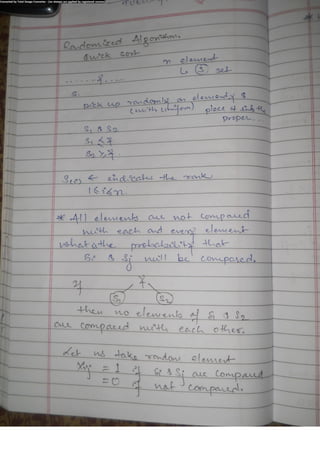 Randomized Algorithm.
Quick sort
n element
↳ (S) set
S
pick up randomly an element y S
(with uniform) place it into the
proper...
S1 & S2
S1 ≤ y
S2 > y
S(i) ← indicates the rank
1≤i≤n
* All elements are not compared
with each and every element
what is the probability that
Si & Sj will be compared.
if y
S1 S2
then no elements of S1 & S2
are compared with each other.
Let us take random element
Xij = 1 if Si & Sj are compared
= 0 if not compared.